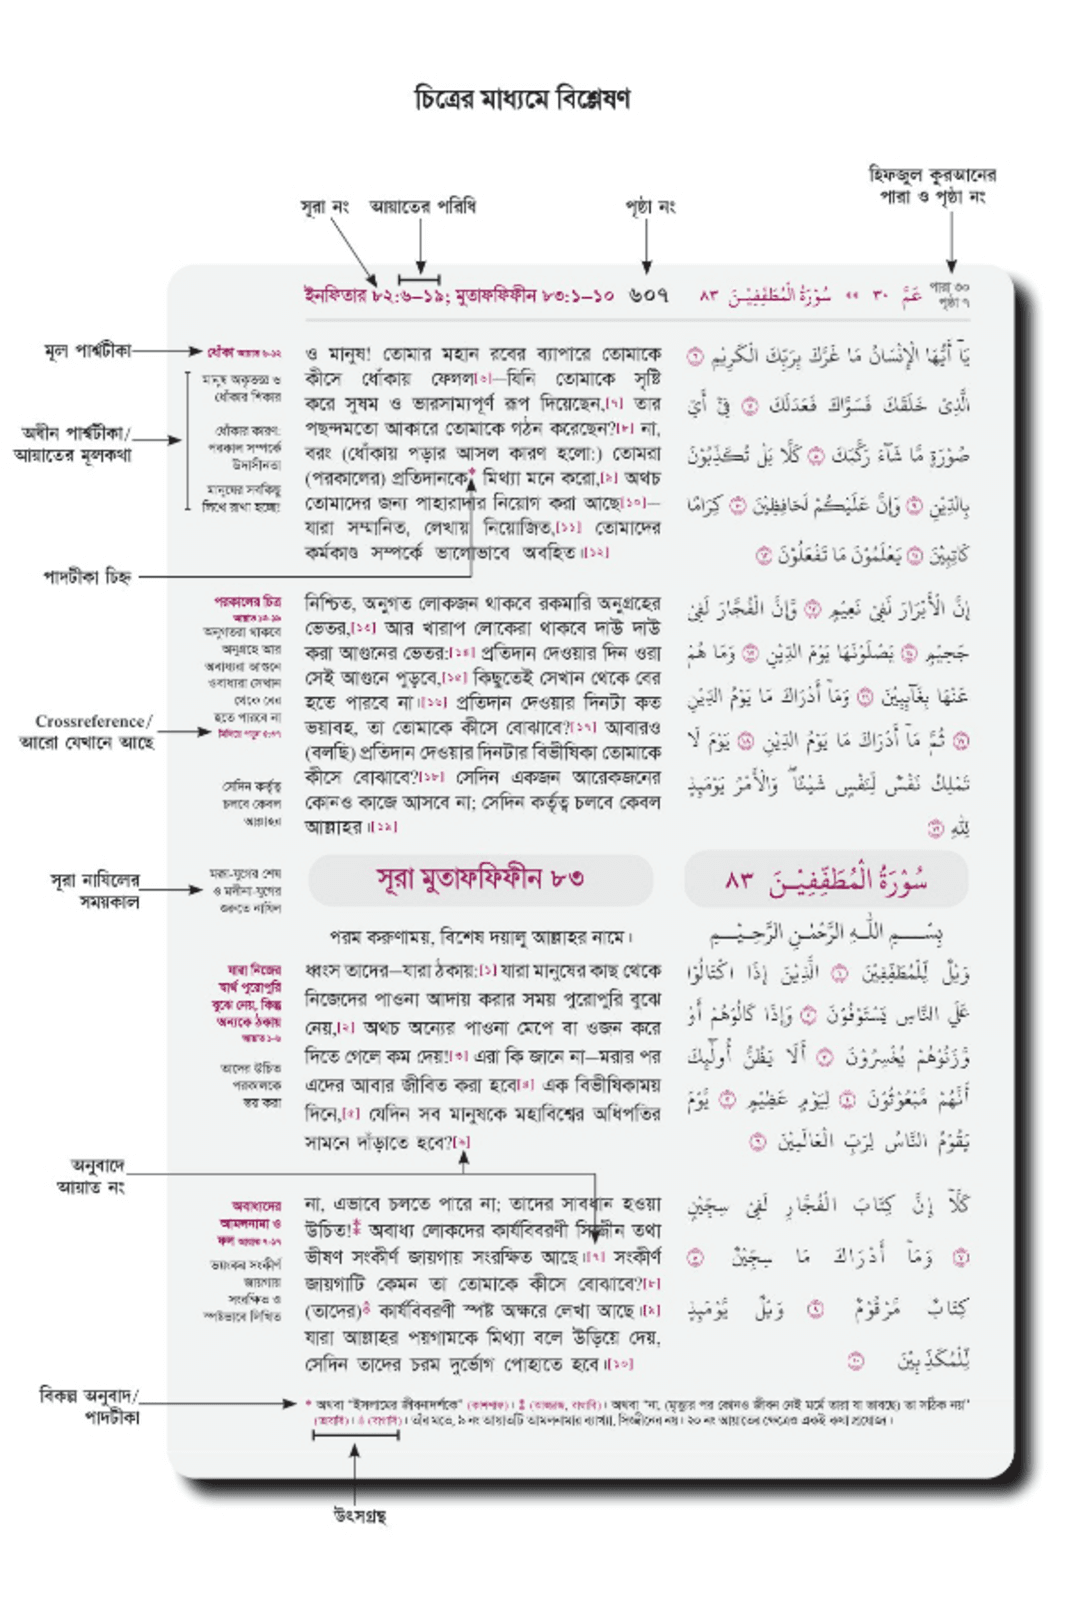 চিত্রের মাধ্যমে বিশ্লেষণ
হিফজুল কুরআনের
পারা ও পৃষ্ঠা নং
সূরা নং
আয়াতের পরিধি
পৃষ্ঠা নং
ইনফিতার ৮২:৬–১৯; মুতাফফিফীন ৮৩:১–১০ ৬০৭
سُوْرَةُ الْمُطَفِّفِيْنَ ٨٣
عَمَّ ٣٠
পারা ৩০
পৃষ্ঠা ৭
মূল পার্শ্বটীকা
অধীন পার্শ্বটীকা/
আয়াতের মূলকথা
পাদটীকা চিহ্ন
Crossreference/
আরো যেখানে আছে
সূরা নাযিলের
সময়কাল
অনুবাদে
আয়াত নং
বিকল্প অনুবাদ/
পাদটীকা
উৎসগ্রন্থ
ধোঁকা আয়াত ৬-১২
মানুষ অকৃতজ্ঞ ও
ধোঁকার শিকার
ধোঁকার কারণ:
পরকাল সম্পর্কে
উদাসীনতা
মানুষের সবকিছু
লিখে রাখা হচ্ছে!
ও মানুষ! তোমার মহান রবের ব্যাপারে তোমাকে
কীসে ধোঁকায় ফেলল[৬]—যিনি তোমাকে সৃষ্টি
করে সুষম ও ভারসাম্যপূর্ণ রূপ দিয়েছেন,[৭] তার
পছন্দমতো আকারে তোমাকে গঠন করেছেন?[৮] না,
বরং (ধোঁকায় পড়ার আসল কারণ হলো:) তোমরা
(পরকালের) প্রতিদানকে* মিথ্যা মনে করো,[৯] অথচ
তোমাদের জন্য পাহারাদার নিয়োগ করা আছে[১০]—
যারা সম্মানিত, লেখায় নিয়োজিত,[১১] তোমাদের
কর্মকাণ্ড সম্পর্কে ভালোভাবে অবহিত।[১২]
يَآ أَيُّهَا الْإِنْسَانُ مَا غَرَّكَ بِرَبِّكَ الْكَرِيْمِ ٦
الَّذِيْ خَلَقَكَ فَسَوَّاكَ فَعَدَلَكَ ٧ فِيْ أَيِّ
صُوْرَةٍ مَّا شَآءَ رَكَّبَكَ ٨ كَلَّا بَلْ تُكَذِّبُوْنَ
بِالدِّيْنِ ٩ وَإِنَّ عَلَيْكُمْ لَحَافِظِيْنَ ١٠ كِرَامًا
كَاتِبِيْنَ ١١ يَعْلَمُوْنَ مَا تَفْعَلُوْنَ ١٢
পরকালের চিত্র
আয়াত ১৩-১৯
অনুগতরা থাকবে
অনুগ্রহে আর
অবাধ্যরা আগুনে
ওবাধ্যরা সেখান
থেকে বের
হতে পারবে না
সেদিন কর্তৃত্ব
চলবে কেবল
আল্লাহর
নিশ্চিত, অনুগত লোকজন থাকবে রকমারি অনুগ্রহের
ভেতর,[১৩] আর খারাপ লোকেরা থাকবে দাউ দাউ
করা আগুনের ভেতর:[১৪] প্রতিদান দেওয়ার দিন ওরা
সেই আগুনে পুড়বে,[১৫] কিছুতেই সেখান থেকে বের
হতে পারবে না।[১৬] প্রতিদান দেওয়ার দিনটা কত
ভয়াবহ, তা তোমাকে কীসে বোঝাবে?[১৭] আবারও
(বলছি) প্রতিদান দেওয়ার দিনটার বিভীষিকা তোমাকে
কীসে বোঝাবে?[১৮] সেদিন একজন আরেকজনের
কোনও কাজে আসবে না; সেদিন কর্তৃত্ব চলবে কেবল
আল্লাহর।[১৯]
إِنَّ الْأَبْرَارَ لَفِيْ نَعِيْمٍ ١٣ وَإِنَّ الْفُجَّارَ لَفِيْ
جَحِيْمٍ ١٤ يَصْلَوْنَهَا يَوْمَ الدِّيْنِ ١٥ وَمَا هُمْ
عَنْهَا بِغَآئِبِيْنَ ١٦ وَمَآ أَدْرَاكَ مَا يَوْمُ الدِّيْنِ
١٧ ثُمَّ مَآ أَدْرَاكَ مَا يَوْمُ الدِّيْنِ ١٨ يَوْمَ لَا
تَمْلِكُ نَفْسٌ لِّنَفْسٍ شَيْئًا وَالْأَمْرُ يَوْمَئِذٍ
لِلّٰهِ ١٩
মক্কা-যুগের শেষ
ও মদীনা-যুগের
শুরুতে নাযিল
সূরা মুতাফফিফীন ৮৩
سُوْرَةُ الْمُطَفِّفِيْنَ ٨٣
পরম করুণাময়, বিশেষ দয়ালু আল্লাহর নামে।
بِسْمِ اللّٰهِ الرَّحْمٰنِ الرَّحِيْمِ
যারা নিজের
স্বার্থ পুরোপুরি
বুঝে নেয়, কিন্তু
অন্যকে ঠকায়
আয়াত ১-৬
তাদের উচিত
পরকালকে
ভয় করা
ধ্বংস তাদের—যারা ঠকায়:[১] যারা মানুষের কাছ থেকে
নিজেদের পাওনা আদায় করার সময় পুরোপুরি বুঝে
নেয়,[২] অথচ অন্যের পাওনা মেপে বা ওজন করে
দিতে গেলে কম দেয়![৩] এরা কি জানে না—মরার পর
এদের আবার জীবিত করা হবে[৪] এক বিভীষিকাময়
দিনে,[৫] যেদিন সব মানুষকে মহাবিশ্বের অধিপতির
সামনে দাঁড়াতে হবে?[৬]
وَيْلٌ لِّلْمُطَفِّفِيْنَ ١ الَّذِيْنَ إِذَا اكْتَالُوْا
عَلَى النَّاسِ يَسْتَوْفُوْنَ ٢ وَإِذَا كَالُوْهُمْ أَوْ
وَّزَنُوْهُمْ يُخْسِرُوْنَ ٣ أَلَا يَظُنُّ أُولٰٓئِكَ
أَنَّهُمْ مَّبْعُوْثُوْنَ ٤ لِيَوْمٍ عَظِيْمٍ ٥ يَّوْمَ
يَقُوْمُ النَّاسُ لِرَبِّ الْعَالَمِيْنَ ٦
অবাধ্যদের
আমলনামা ও
ফল আয়াত ৭-১৭
ভয়ংকর সংকীর্ণ
জায়গায়
সংরক্ষিত ও
স্পষ্টভাবে লিখিত
না, এভাবে চলতে পারে না; তাদের সাবধান হওয়া
উচিত! অবাধ্য লোকদের কার্যবিবরণী সিজ্জীন তথা
ভীষণ সংকীর্ণ জায়গায় সংরক্ষিত আছে।[৭] সংকীর্ণ
জায়গাটি কেমন তা তোমাকে কীসে বোঝাবে?[৮]
(তাদের) কার্যবিবরণী স্পষ্ট অক্ষরে লেখা আছে।[৯]
যারা আল্লাহর পয়গামকে মিথ্যা বলে উড়িয়ে দেয়,
সেদিন তাদের চরম দুর্ভোগ পোহাতে হবে।[১০]
كَلَّآ إِنَّ كِتَابَ الْفُجَّارِ لَفِيْ سِجِّيْنٍ
٧ وَمَآ أَدْرَاكَ مَا سِجِّيْنٌ ٨
كِتَابٌ مَّرْقُوْمٌ ٩ وَيْلٌ يَّوْمَئِذٍ
لِّلْمُكَذِّبِيْنَ ١٠
* অথবা “ইসলামের জীবনাদর্শকে” (কাশশাফ)। অথবা “না, (মৃত্যুর পর কোনও জীবন নেই মর্মে তারা যা ভাবছে) তা সঠিক নয়”
তাঁর মতে, ৯ নং আয়াতটি আমলনামার ব্যাখ্যা, সিজ্জীনের নয়। ২০ নং আয়াতের ক্ষেত্রেও একই কথা প্রযোজ্য।